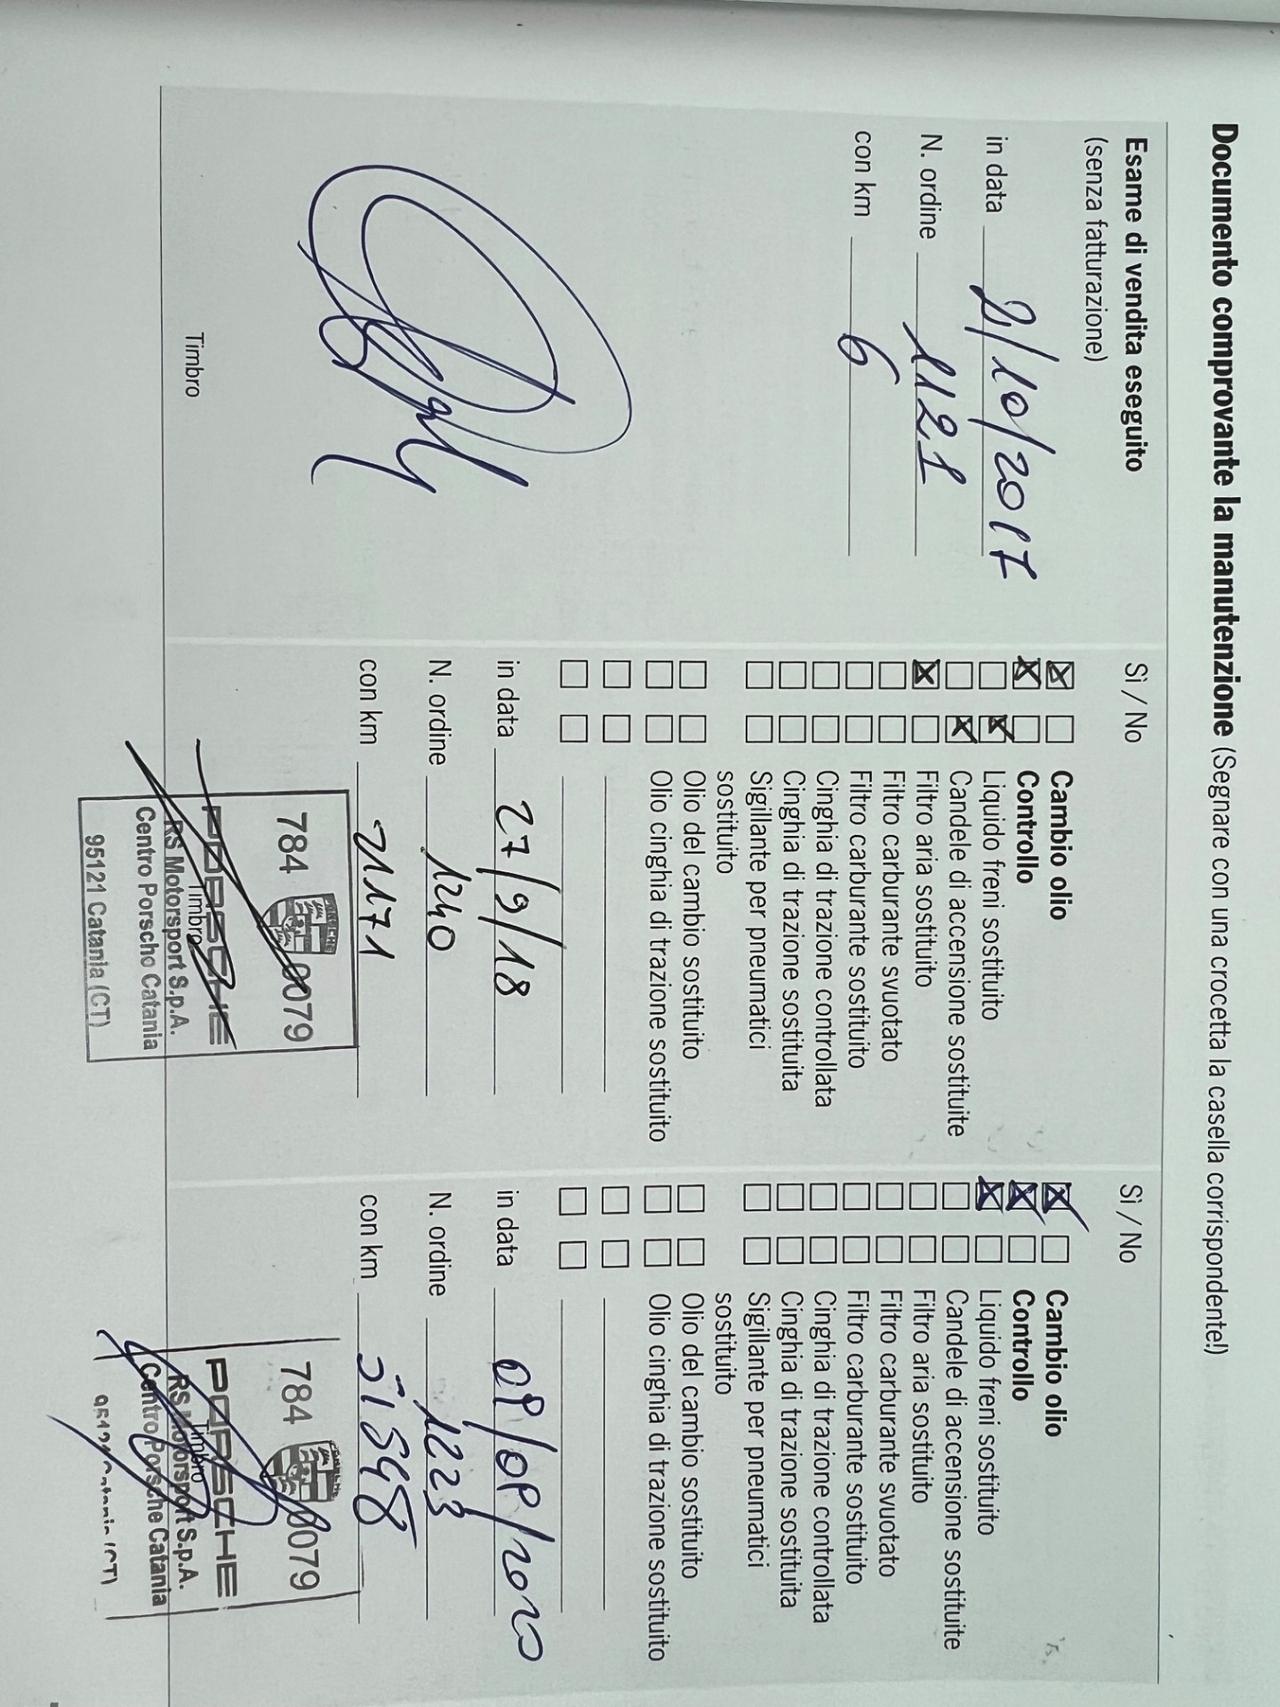 Documento comprovante la manutenzione (Segnare con una crocetta la casella corrispondente!)
Esame di vendita eseguito
(senza fatturazione)
in data 2/10/2017
N. ordine 1121
con km 6
Timbro
Sì / No
Cambio olio
Controllo
Liquido freni sostituito
Candele di accensione sostituite
Filtro aria sostituito
Filtro carburante svuotato
Filtro carburante sostituito
Cinghia di trazione controllata
Cinghia di trazione sostituita
Sigillante per pneumatici
sostituito
Olio del cambio sostituito
Olio cinghia di trazione sostituito
in data 27/9/18
N. ordine 1240
con km 21171
784 0079
PORSCHE
Timbro
RS Motorsport S.p.A.
Centro Porsche Catania
95121 Catania (CT)
Sì / No
Cambio olio
Controllo
Liquido freni sostituito
Candele di accensione sostituite
Filtro aria sostituito
Filtro carburante svuotato
Filtro carburante sostituito
Cinghia di trazione controllata
Cinghia di trazione sostituita
Sigillante per pneumatici
sostituito
Olio del cambio sostituito
Olio cinghia di trazione sostituito
in data
N. ordine 1223
con km
784 0079
PORSCHE
Timbro
RS Motorsport S.p.A.
Centro Porsche Catania
95121 Catania (CT)